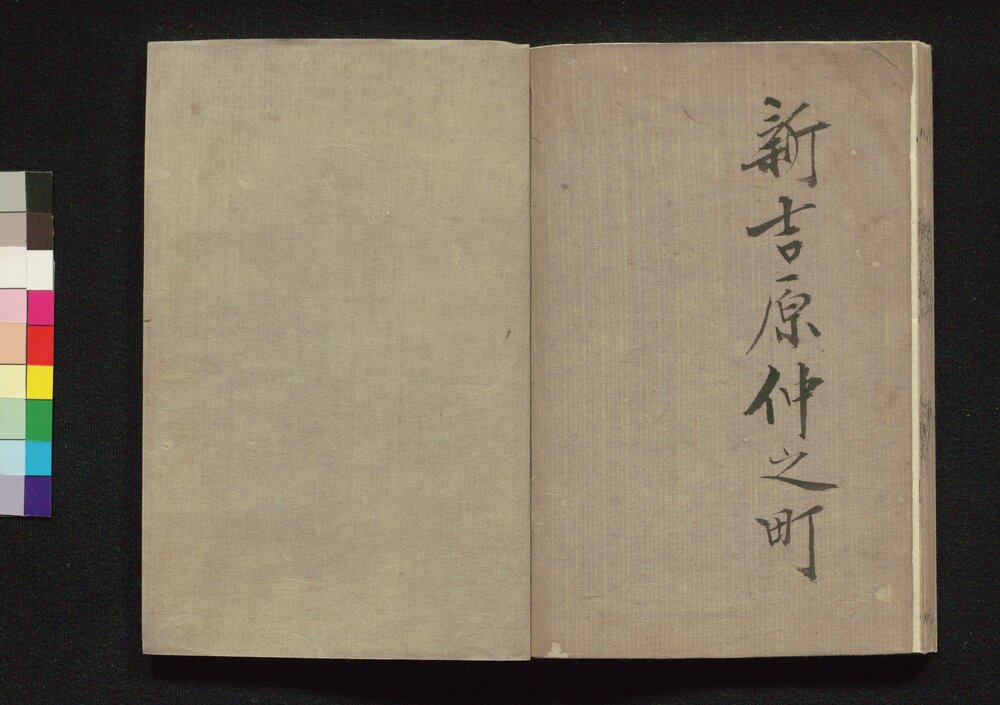 新吉原仲之町